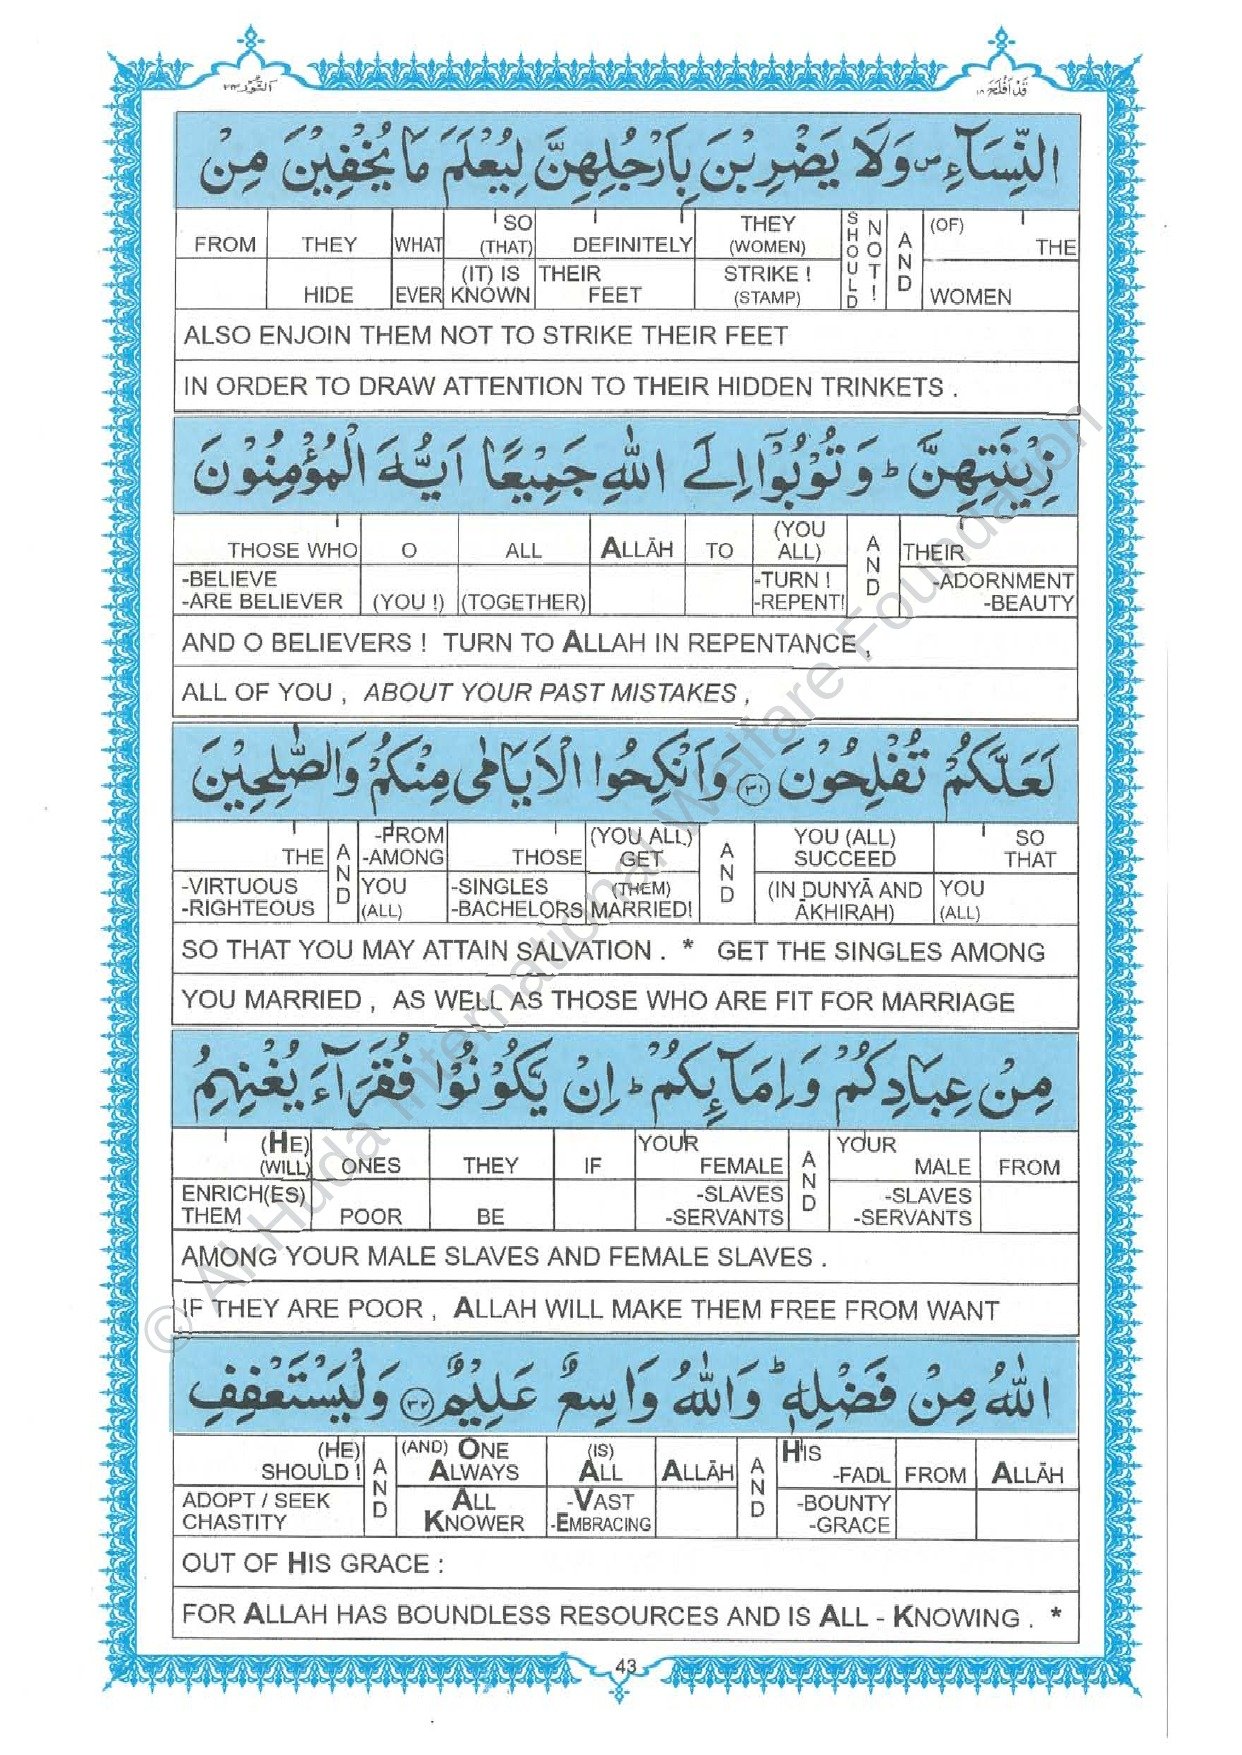 اَلنُّوْر ٢٤
قَدْ اَفْلَحَ ١٨
النِّسَآءِ ص وَلَا يَضْرِبْنَ بِاَرْجُلِهِنَّ لِيُعْلَمَ مَا يُخْفِيْنَ مِنْ
FROM THEY WHAT SO (THAT) DEFINITELY THEY (WOMEN) SHOULD NOT! AND (OF) THE
HIDE EVER (IT) IS KNOWN THEIR FEET STRIKE ! (STAMP) WOMEN
ALSO ENJOIN THEM NOT TO STRIKE THEIR FEET
IN ORDER TO DRAW ATTENTION TO THEIR HIDDEN TRINKETS .
زِيْنَتِهِنَّ ط وَتُوْبُوْٓا اِلَى اللّٰهِ جَمِيْعًا اَيُّهَ الْمُؤْمِنُوْنَ
THOSE WHO O ALL ALLĀH TO (YOU ALL) AND THEIR
-BELIEVE -ARE BELIEVER (YOU !) (TOGETHER) -TURN ! -REPENT! -ADORNMENT -BEAUTY
AND O BELIEVERS ! TURN TO ALLAH IN REPENTANCE ,
ALL OF YOU , ABOUT YOUR PAST MISTAKES ,
لَعَلَّكُمْ تُفْلِحُوْنَ ٣١ وَاَنْكِحُوا الْاَيَامٰى مِنْكُمْ وَالصّٰلِحِيْنَ
THE AND -FROM -AMONG THOSE (YOU ALL) GET AND YOU (ALL) SUCCEED SO THAT
-VIRTUOUS -RIGHTEOUS YOU (ALL) -SINGLES -BACHELORS (THEM) MARRIED! (IN DUNYĀ AND ĀKHIRAH) YOU (ALL)
SO THAT YOU MAY ATTAIN SALVATION . * GET THE SINGLES AMONG
YOU MARRIED , AS WELL AS THOSE WHO ARE FIT FOR MARRIAGE
مِنْ عِبَادِكُمْ وَاِمَآئِكُمْ ط اِنْ يَّكُوْنُوْا فُقَرَآءَ يُغْنِهِمُ
(HE) (WILL) ONES THEY IF YOUR FEMALE AND YOUR MALE FROM
ENRICH(ES) THEM POOR BE -SLAVES -SERVANTS -SLAVES -SERVANTS
AMONG YOUR MALE SLAVES AND FEMALE SLAVES .
IF THEY ARE POOR , ALLAH WILL MAKE THEM FREE FROM WANT
اللّٰهُ مِنْ فَضْلِهٖ ط وَاللّٰهُ وَاسِعٌ عَلِيْمٌ ٣٢ وَلْيَسْتَعْفِفِ
(HE) SHOULD ! AND (AND) ONE ALWAYS (IS) ALL ALLĀH AND HIS -FADL FROM ALLĀH
ADOPT / SEEK CHASTITY ALL KNOWER -VAST -EMBRACING -BOUNTY -GRACE
OUT OF HIS GRACE :
FOR ALLAH HAS BOUNDLESS RESOURCES AND IS ALL - KNOWING . *
43
© Al-Huda International Welfare Foundation